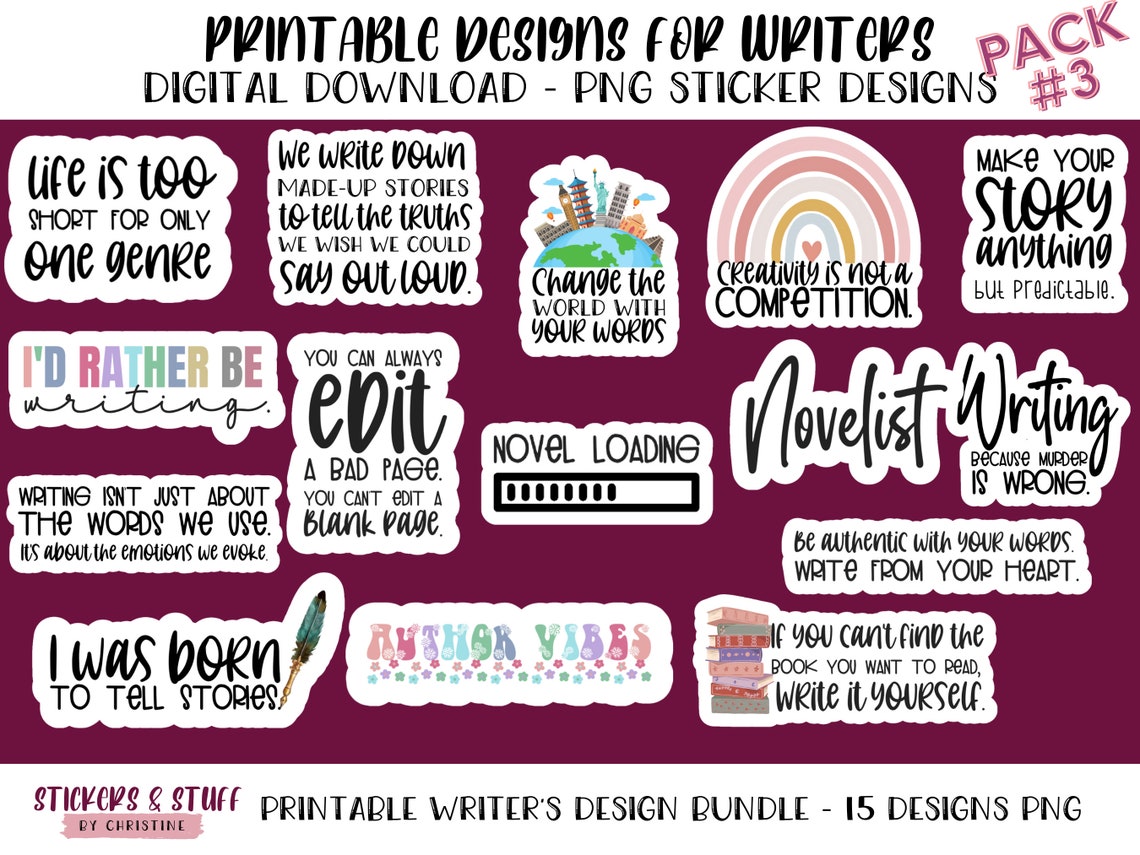 PRINTABLE DESIGNS FOR WRITERS
DIGITAL DOWNLOAD - PNG STICKER DESIGNS
PACK
#3
Life is too
SHORT FOR ONLY
one genre
We write down
MADE-UP STORIES
to tell the truths
WE WISH WE COULD
say out loud.
Change the
WORLD WITH
YOUR WORDS
Creativity is not a
COMPETITION.
MAKE YOUR
STORY
anything
but predictable.
I'D RATHER BE
writing.
YOU CAN ALWAYS
edit
A BAD PAGE.
YOU CAN'T EDIT A
Blank page.
NOVEL LOADING
Novelist
Writing
BECAUSE MURDER
IS WRONG.
WRITING ISN'T JUST ABOUT
THE WORDS WE USE.
It's about the emotions we evoke.
Be authentic with your words.
WRITE FROM YOUR HEART.
I was born
TO TELL STORIES.
AUTHOR VIBES
If you can't find the
BOOK YOU WANT TO READ,
Write it yourself.
STICKERS & STUFF
BY CHRISTINE
PRINTABLE WRITER'S DESIGN BUNDLE - 15 DESIGNS PNG